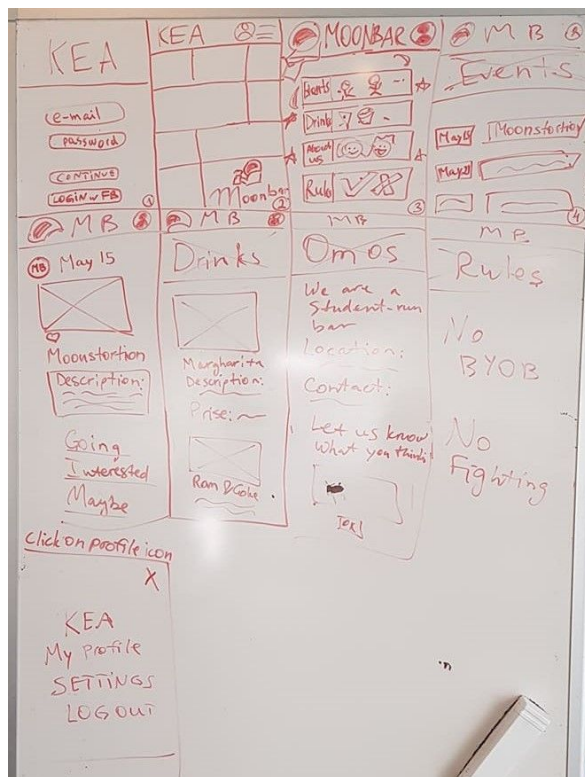 KEA
e-mail
password
CONTINUE
LOGIN w FB
1
KEA
Moonbar
2
MOONBAR
Events
Drink
About us
Rule
3
MB
Events
May 15
Moonstortion
May 21
4
MB
MB May 15
Moonstortion
Description:
Going
Interested
Maybe
MB
Drinks
Margharita
Description:
Prise:
Rom & Coke
MB
Om os
We are a
student-run
bar
Location:
Contact:
Let us know
what you think:
MB
Rules
No
BYOB
No
Fighting
Click on profile icon
X
KEA
My Profile
SETTINGS
LOGOUT